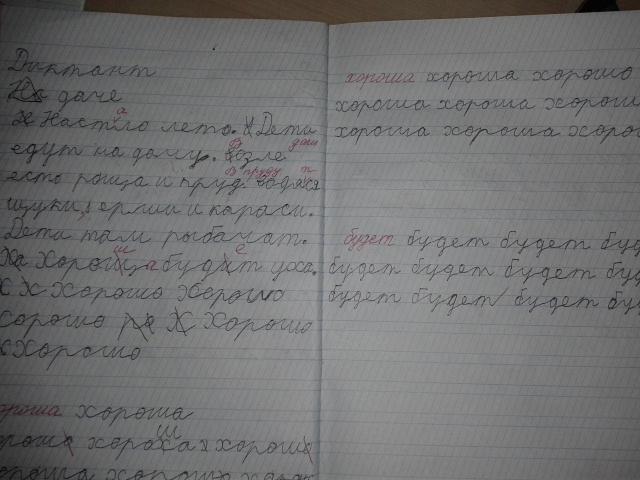 Диктант
На даче
Настало лето. Дети
едут на дачу. Возле дачи
есть роща и пруд. В пруду водятся
щуки, ерши и караси.
Дети там рыбачат.
Хороша будет уха.
Хорошо Хорошо
хорошо Хорошо
Хорошо
хороша хороша
хороша хороша
хороша хорошо
хороша хороша хорошо
хороша хороша
хороша хороша
будет будет будет
будет будет будет
будет будет будет